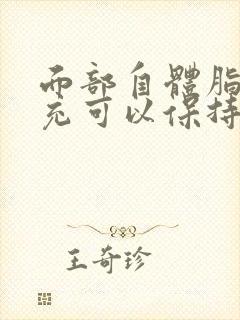 面部自體脂
充可以保持
王奇珍